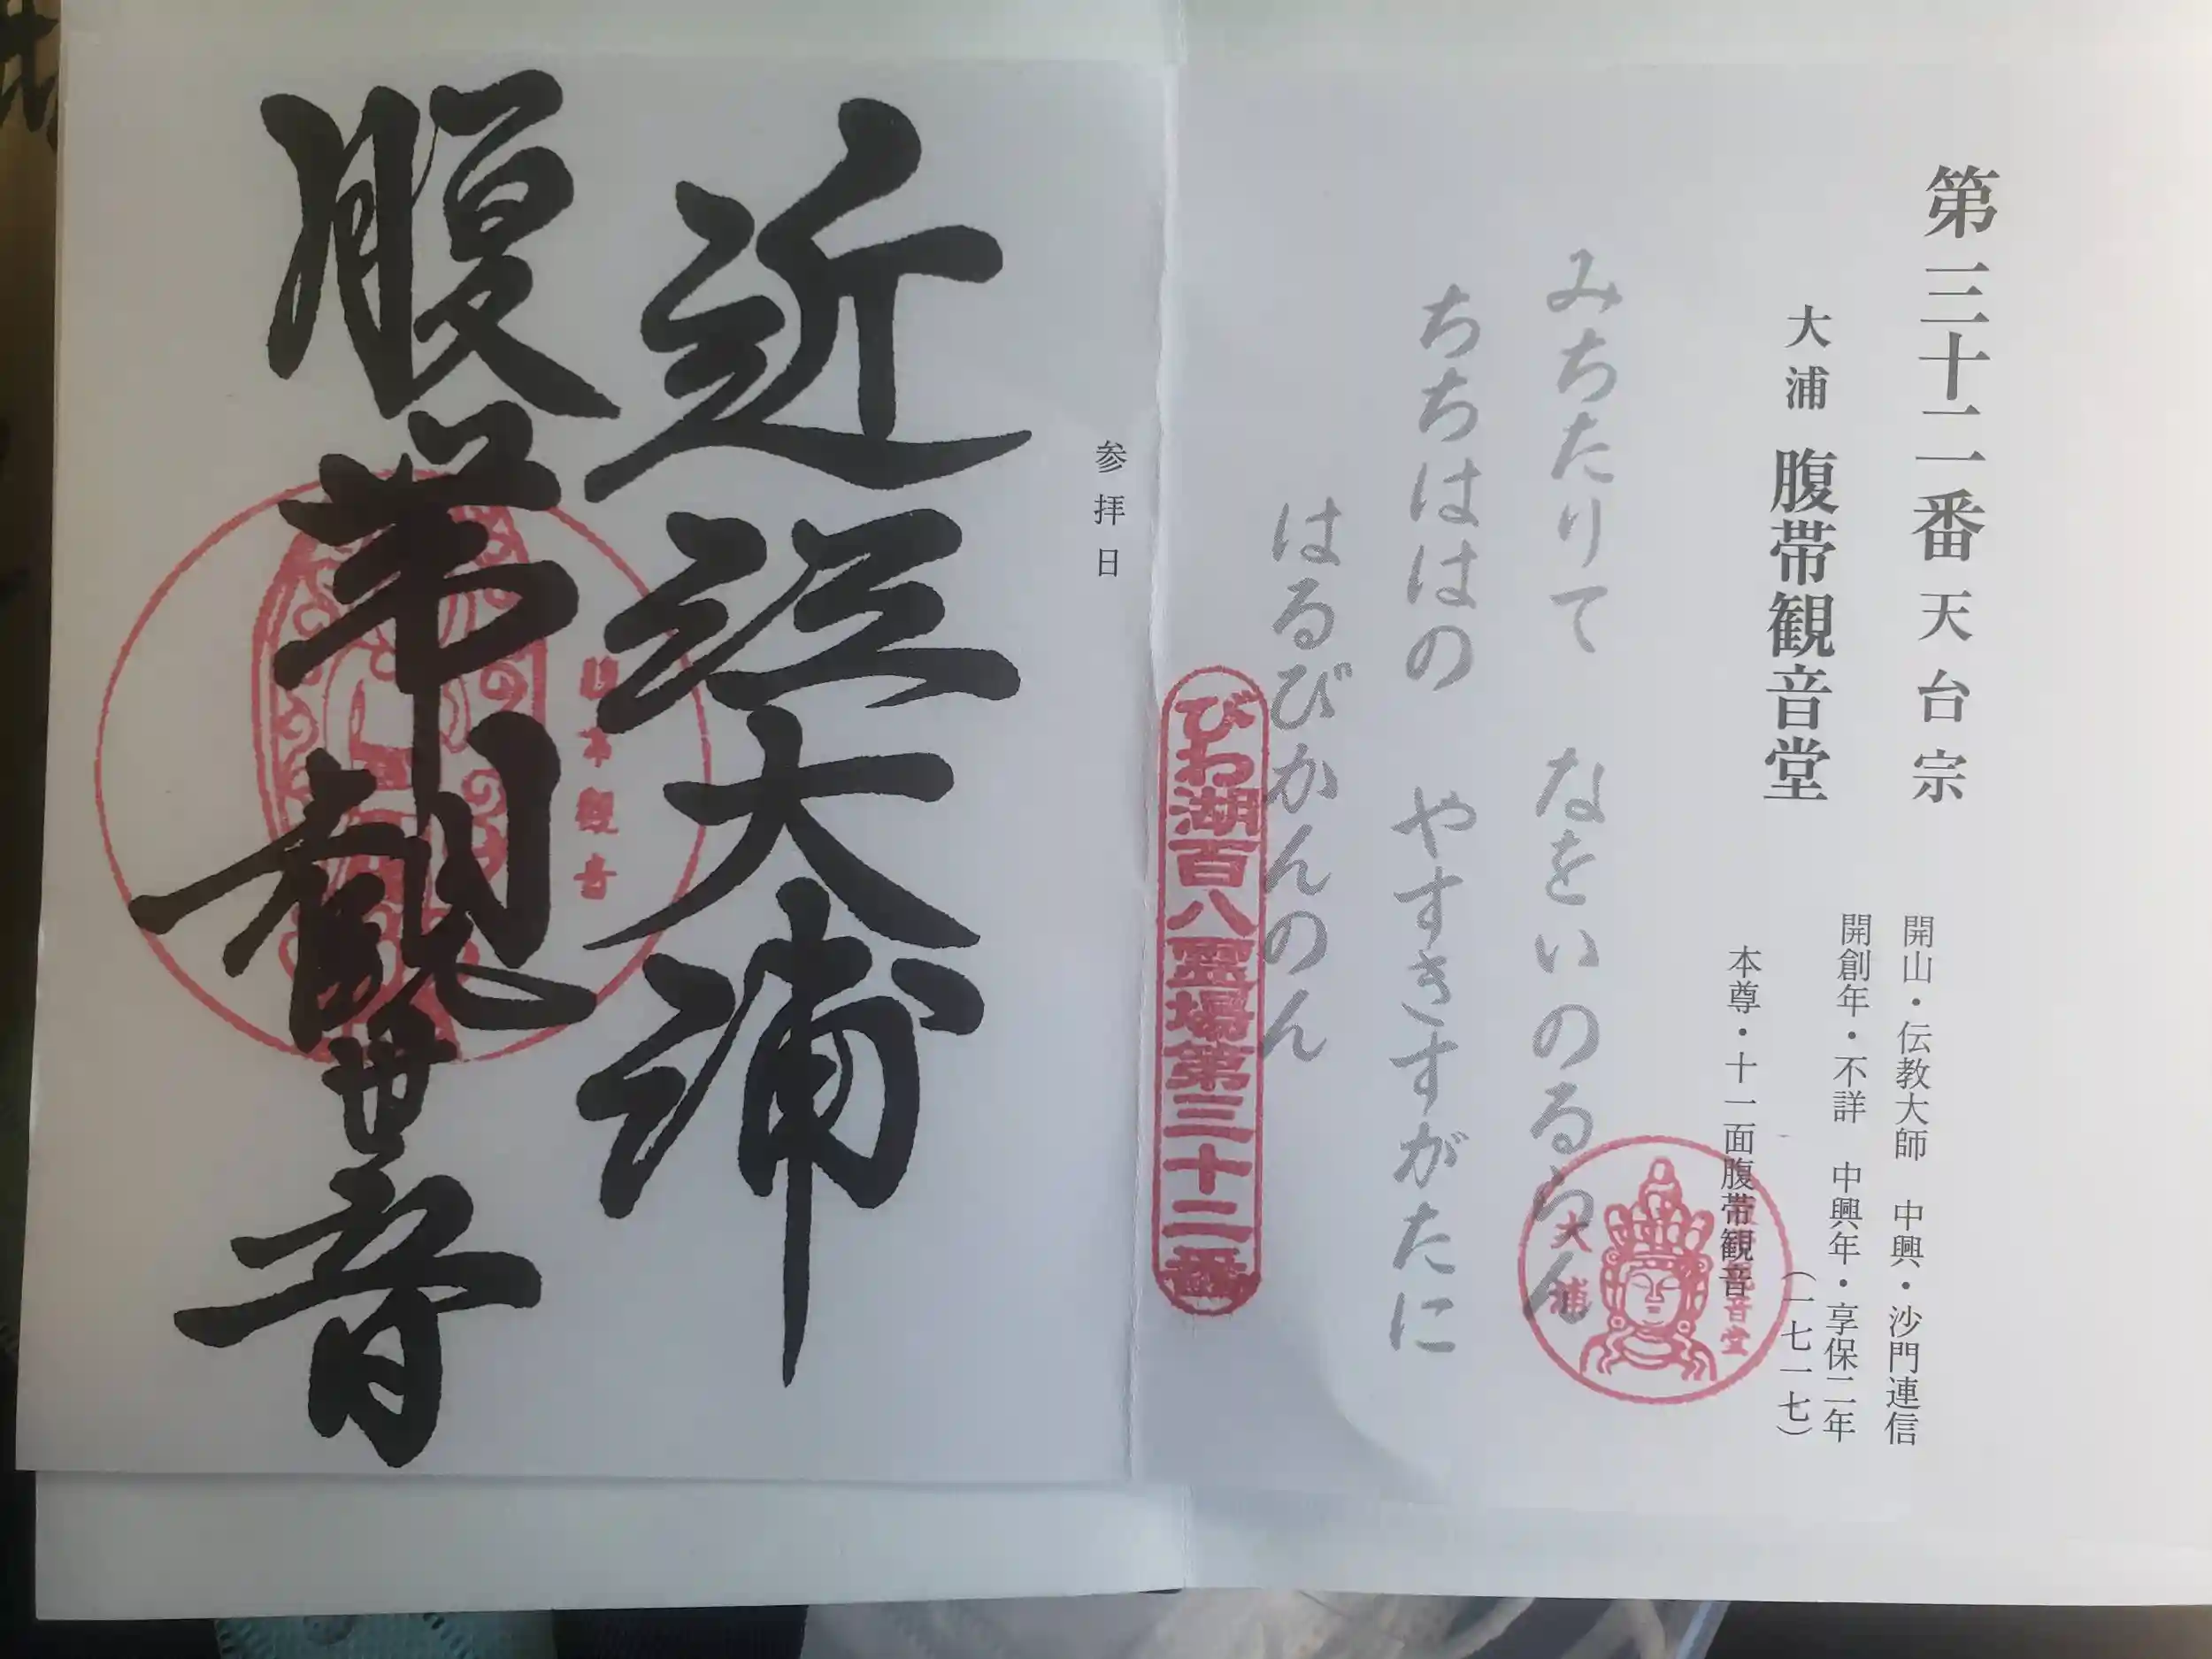 第三十二番 天台宗
大浦 腹帯観音堂
開山・伝教大師 中興・沙門連信
開創年・不詳 中興年・享保二年
(一七一七)
本尊・十一面腹帯観音
大浦
腹帯観音堂
みちたりて なをいのるらん
ちちははの やすきすがたに
はるびかんのん
びわ湖百八霊場第三十二番
参拝日
近江大浦
腹帯観世音
腹帯観音